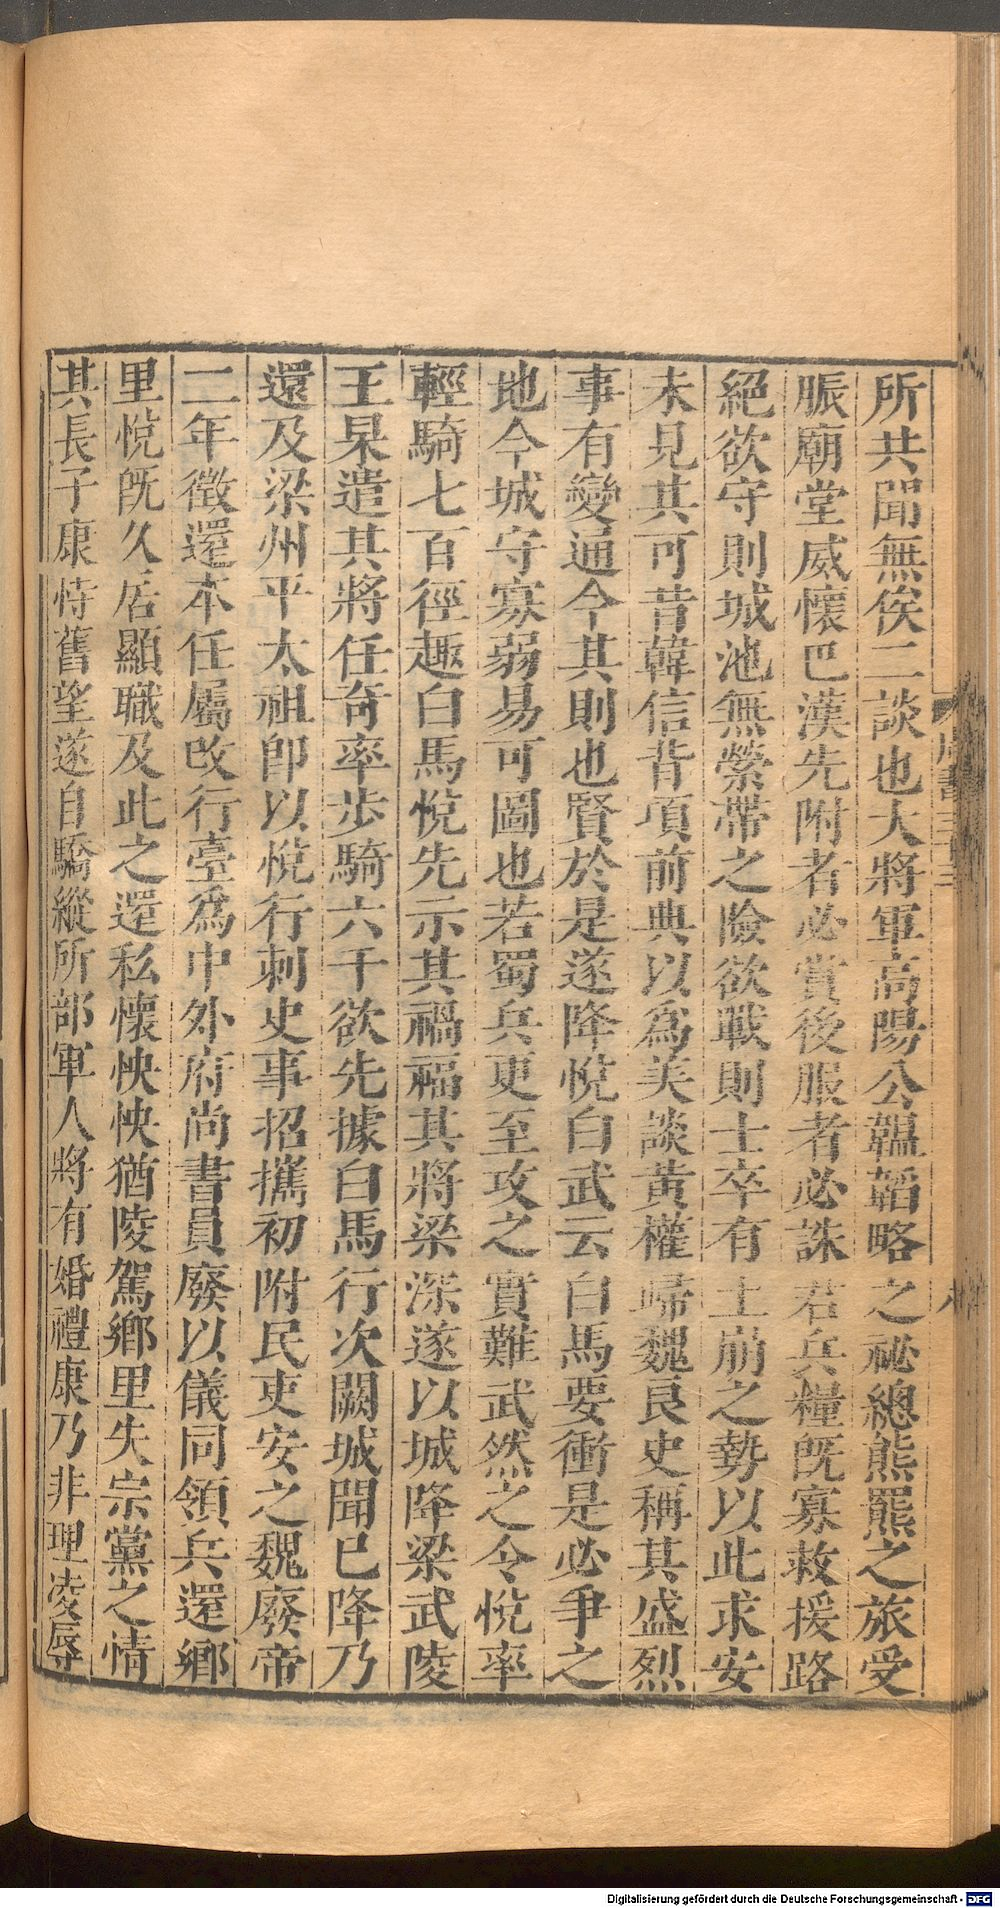 所共聞無俟二談也大將軍高陽公韞韜略之祕總熊羆之旅受
脤廟堂威懷巴漢先附者必賞後服者必誅君兵糧旣寡救援路
絕欲守則城池無縈帶之險欲戰則士卒有土崩之勢以此求安
未見其可昔韓信背項前典以爲美談黃權歸魏良史稱其盛烈
事有變通今其則也賢於是遂降悅白武云白馬要衝是必爭之
地今城守寡弱易可圖也若蜀兵更至攻之實難武然之令悅率
輕騎七百徑趣白馬悅先示其禍福其將梁深遂以城降梁武陵
王杲遣其將任奇率步騎六千欲先據白馬行次闕城聞已降乃
還及梁州平太祖卽以悅行刺史事招攜初附民吏安之魏廢帝
二年徵還本任屬改行臺爲中外府尚書員廢以儀同領兵還鄉
里悅旣久居顯職及此之還私懷怏怏猶陵駕鄉里失宗黨之情
其長子康恃舊望遂自驕縱所部軍人將有婚禮康乃非理凌辱
周書三十三
八
Digitalisierung gefördert durch die Deutsche Forschungsgemeinschaft - DFG